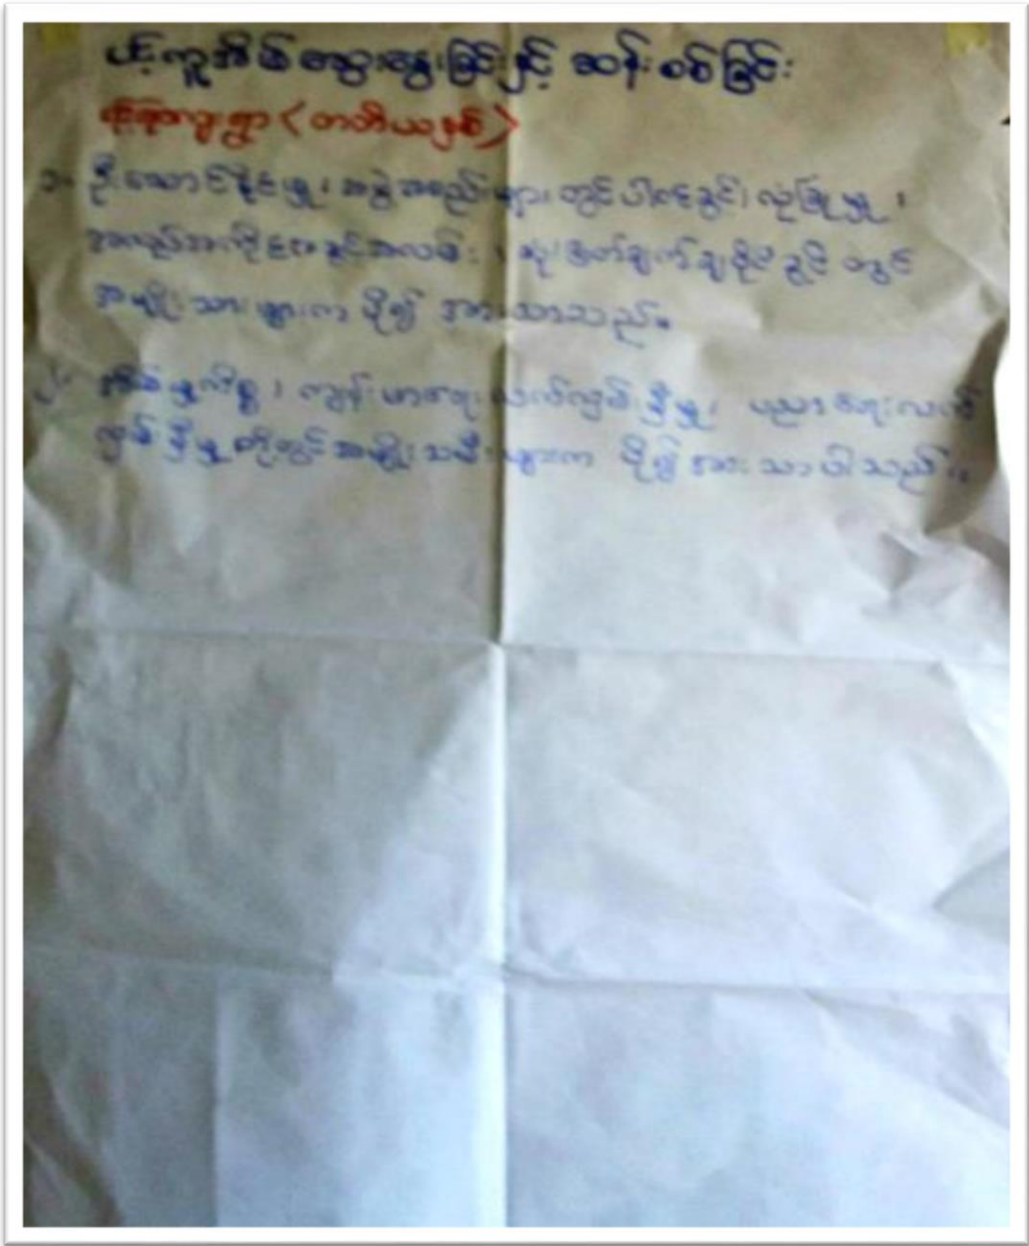 ပင့်ကူအိမ် ဆွေးနွေးခြင်းနှင့် ဆန်းစစ်ခြင်း
ကျေးရွာ (တဘီယနစ်)
၁။ ဦးဆောင်နိုင်မှု၊ အဖွဲ့အစည်းများတွင် ပါဝင်ခွင့်၊ လုံခြုံမှု၊
အလုပ်အကိုင်အခွင့်အလမ်း၊ ဆုံးဖြတ်ချက်ချနိုင်ခွင့် တွင်
အမျိုးသားများက ပို၍ အားသာသည်။
၂။ အိမ်မှုကိစ္စ၊ ကျန်းမာရေးလက်လှမ်းမှီမှု၊ ပညာရေးလက်
လှမ်းမှီမှု တို့တွင် အမျိုးသမီးများက ပို၍ အားသာပါသည်။